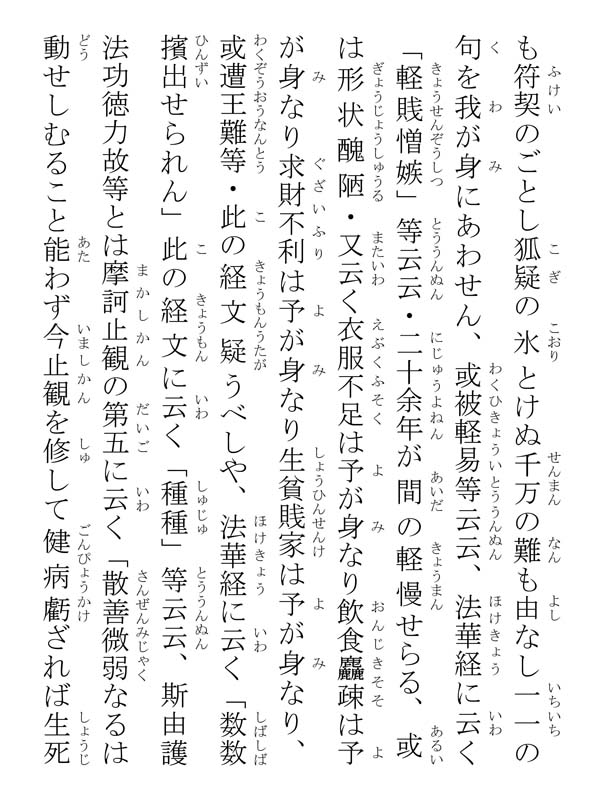 も符契のごとし狐疑の氷とけぬ千万の難も由なし一一の
句を我が身にあわせん、或被軽易等云云、法華経に云く
「軽賎憎嫉」等云云・二十余年が間の軽慢せらる、或
は形状醜陋・又云く衣服不足は予が身なり飲食麤疎は予
が身なり求財不利は予が身なり生貧賎家は予が身なり、
或遭王難等・此の経文疑うべしや、法華経に云く「数数
擯出せられん」此の経文に云く「種種」等云云、斯由護
法功徳力故等とは摩訶止観の第五に云く「散善微弱なるは
動せしむること能わず今止観を修して健病虧ざれば生死